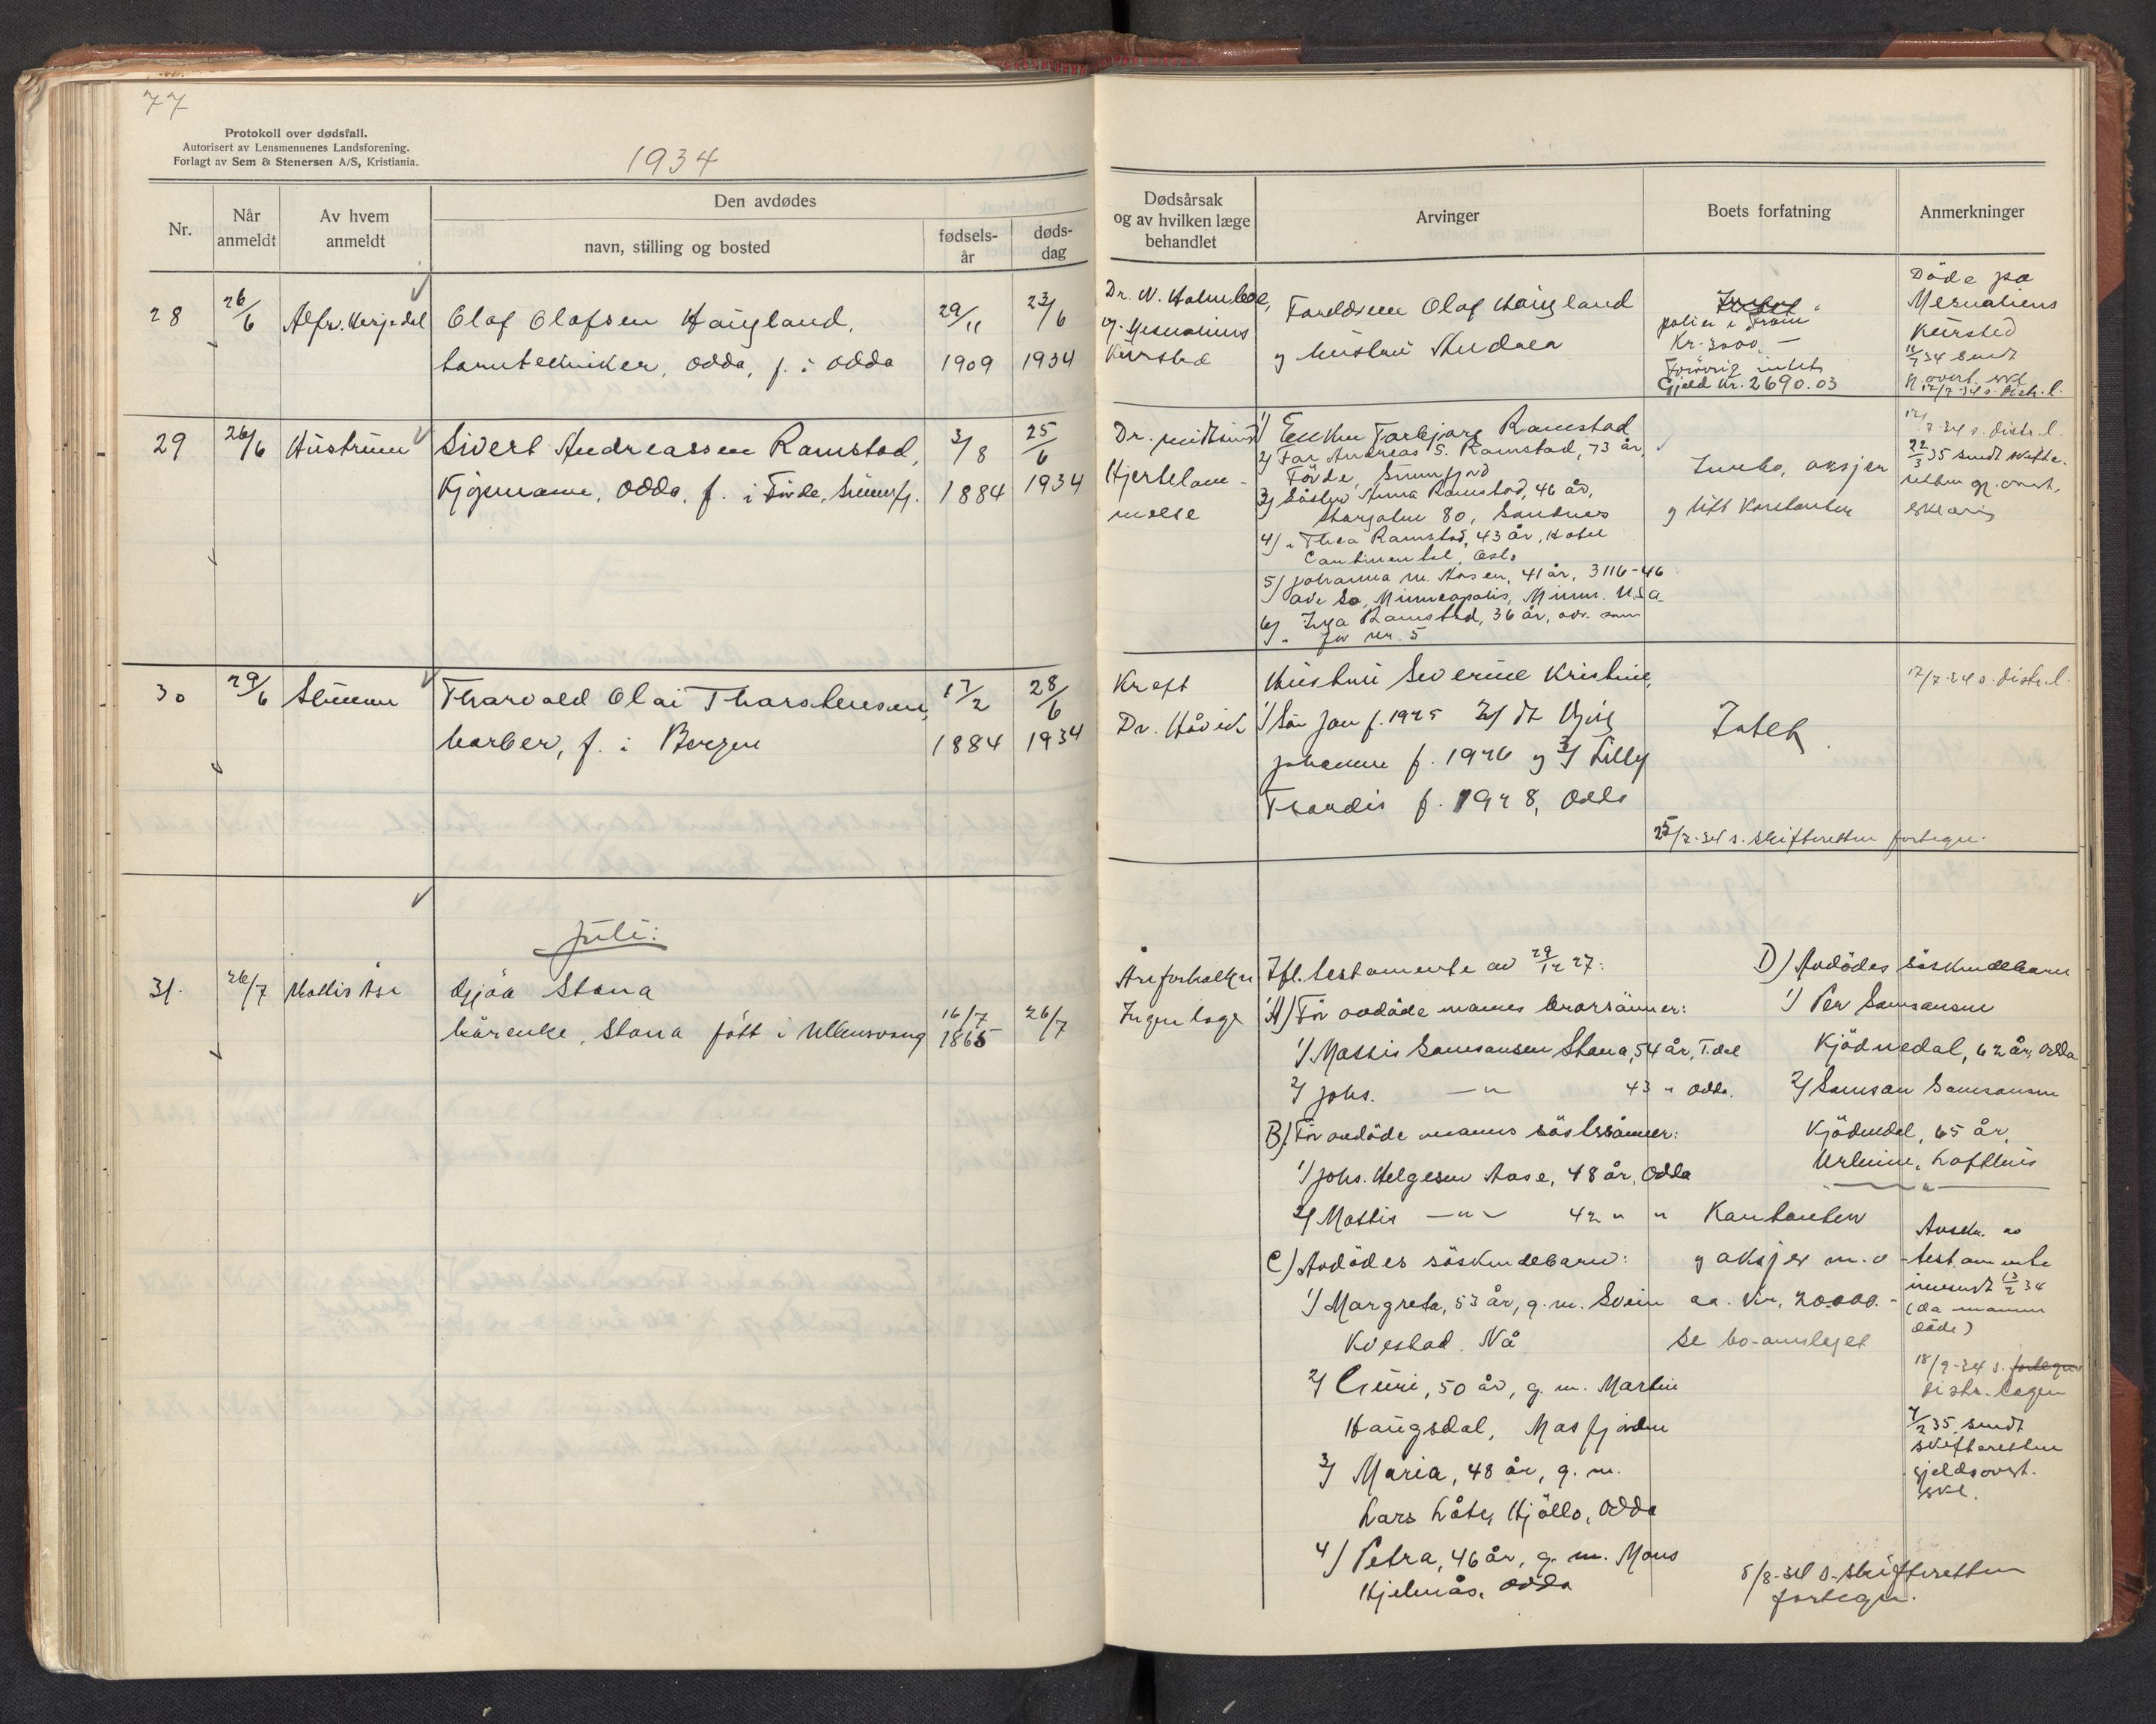 77
Protokoll over dødsfall.
Autorisert av Lensmennenes Landsforening.
Forlagt av Sem & Stenersen A/S, Kristiania.
1934
Nr.
Når anmeldt
Av hvem anmeldt
Den avdødes
navn, stilling og bosted
fødsels-år
døds-dag
Dødsårsak og av hvilken læge behandlet
Arvinger
Boets forfatning
Anmerkninger
28
26/6
Olaf Olafsen Haugland,
tanntekniker, Odda, f. i Odda
29/11
1909
23/6
1934
Dr. N. Holmboe,
Kursted
Foreldrene Olaf Haugland
og hustru Andrea
polise i "Fram"
Kr. 2000.-
Forøvrig intet
Gjeld kr. 2690.03
Døde på
Mesnaliens
Kursted
11/7 34 sendt
17/7-34 s. distr.l.
29
26/6
Hustruen
Sivert Andreassen Ramstad,
Kjøpmann, Odda, f. i Førde, Sunnfj.
3/8
1884
25/6
1934
Hjertelam-
melse
1/ Enken Torbjørg Ramstad
2/ Far Andreas S. Ramstad, 73 år,
Førde, Sunnfjord
3/ Søster Anna Ramstad, 46 år,
Storgaten 80, Sandnes
4/ " Thea Ramstad, 43 år, Hotel
Continental, Oslo
5/ Johanna M. Aasen, 41 år, 3116-46
ave So, Minneapolis, Minn. U.S.A.
6/ " Inga Ramstad, 36 år, adr. som
for nr. 5
Innbo, aksjer
og litt kontanter
17/7-34 s. distr.l.
22/3 35 sendt skifte-
retten gj. overt.
erklæring
30
29/6
Sønnen
Thorvald Olai Thorstensen,
barber, f. i Bergen
17/2
1884
28/6
1934
Kreft
Dr. Håvik
Hustru Severine Kristine,
1/ Søn Jan f. 1925 2/ dt
Johanne f. 1926 og 3/ Lilly
Trondis f. 1928, Odda
Intet
17/7-34 s. distr.l.
25/7-34 s. skifteretten fortegn.
Juli:
31.
26/7
Mattis Åse
Gjøa Stana
kårenke, Stana født i Ullensvang
16/7
1865
26/7
Åreforkalkn
Ingen læge
Ifl. testamente av 29/12 27:
A) Før avdøde manns brorsønner:
1/ Mattis Samsonsen Stana, 54 år, T.dal
2/ Johs. —"— 43 " Odda.
B) Før avdøde manns søstersønner:
1/ Johs. Helgesen Aase, 48 år, Odda
2/ Mattis —"— 42 " "
C) Avdødes søskendebarn:
1/ Margreta, 53 år, g.m. Svein
Kvestad. Nå
2/ Guri, 50 år, g.m. Martin
Haugsdal, Masfjorden
3/ Maria, 48 år, g.m.
Lars Låte, Hjøllo, Odda
4/ Petra, 46 år, g.m. Mons
Hjelmås, Odda
D) Avdødes søskendebarn
1/ Per Samsonsen
Kjødnedal, 62 år, Odda
2/ Samson Samsonsen
Kjødnedal, 65 år,
Lofthus
Kontanter
og aksjer m.v
aa. kr. 20.000.-
Se bo-omslaget
Avskr. av
testamente
innsendt 13/2 34
(da mannen
døde)
18/9-34 s. fortegn
distr. legen
7/2 35 sendt
skifteretten
gjeldsovert.
erkl.
8/8-34 s. skifteretten
fortegn.